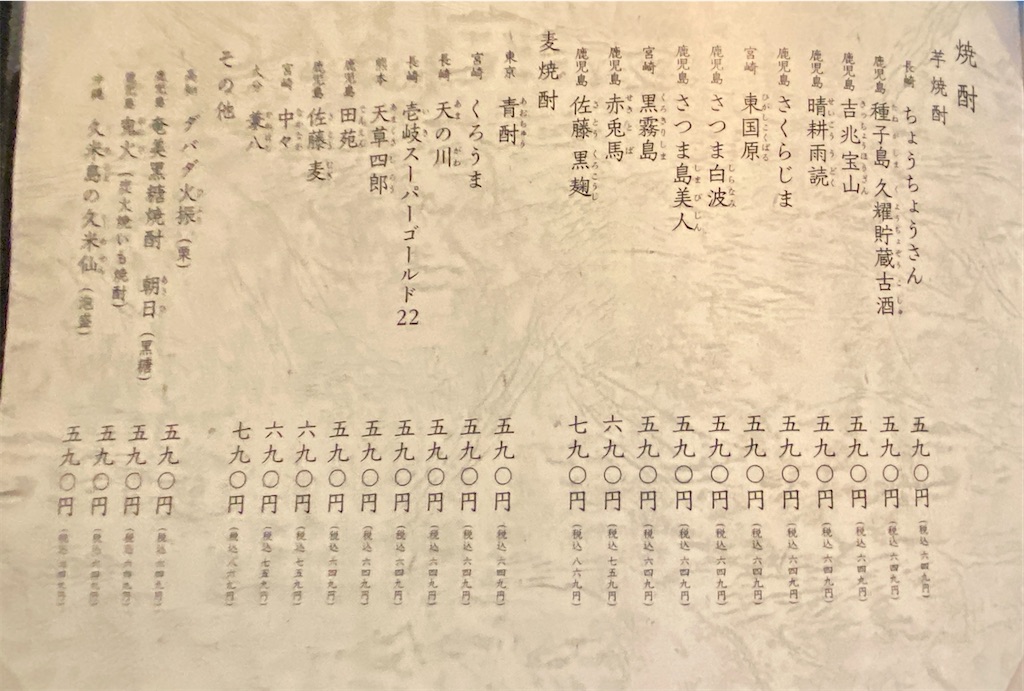 焼酎
芋焼酎
長崎 ちょうちょうさん 五九〇円 (税込 六四九円)
鹿児島 種子島 久耀貯蔵古酒 五九〇円 (税込 六四九円)
鹿児島 吉兆宝山 五九〇円 (税込 六四九円)
鹿児島 晴耕雨読 五九〇円 (税込 六四九円)
鹿児島 さくらじま 五九〇円 (税込 六四九円)
宮崎 東国原 五九〇円 (税込 六四九円)
鹿児島 さつま白波 五九〇円 (税込 六四九円)
鹿児島 さつま島美人 五九〇円 (税込 六四九円)
宮崎 黒霧島 五九〇円 (税込 六四九円)
鹿児島 赤兎馬 六九〇円 (税込 七五九円)
鹿児島 佐藤 黒麹 七九〇円 (税込 八六九円)
麦焼酎
東京 青酎 五九〇円 (税込 六四九円)
宮崎 くろうま 五九〇円 (税込 六四九円)
長崎 天の川 五九〇円 (税込 六四九円)
長崎 壱岐スーパーゴールド22 五九〇円 (税込 六四九円)
熊本 天草四郎 五九〇円 (税込 六四九円)
鹿児島 田苑 五九〇円 (税込 六四九円)
鹿児島 佐藤 麦 六九〇円 (税込 七五九円)
宮崎 中々 六九〇円 (税込 七五九円)
大分 兼八 七九〇円 (税込 八六九円)
その他
高知 ダバダ火振 (栗) 五九〇円 (税込 六四九円)
鹿児島 奄美黒糖焼酎 朝日 (黒糖) 五九〇円 (税込 六四九円)
鹿児島 鬼火 (炭火焼いも焼酎) 五九〇円 (税込 六四九円)
沖縄 久米島の久米仙 (泡盛) 五九〇円 (税込 六四九円)